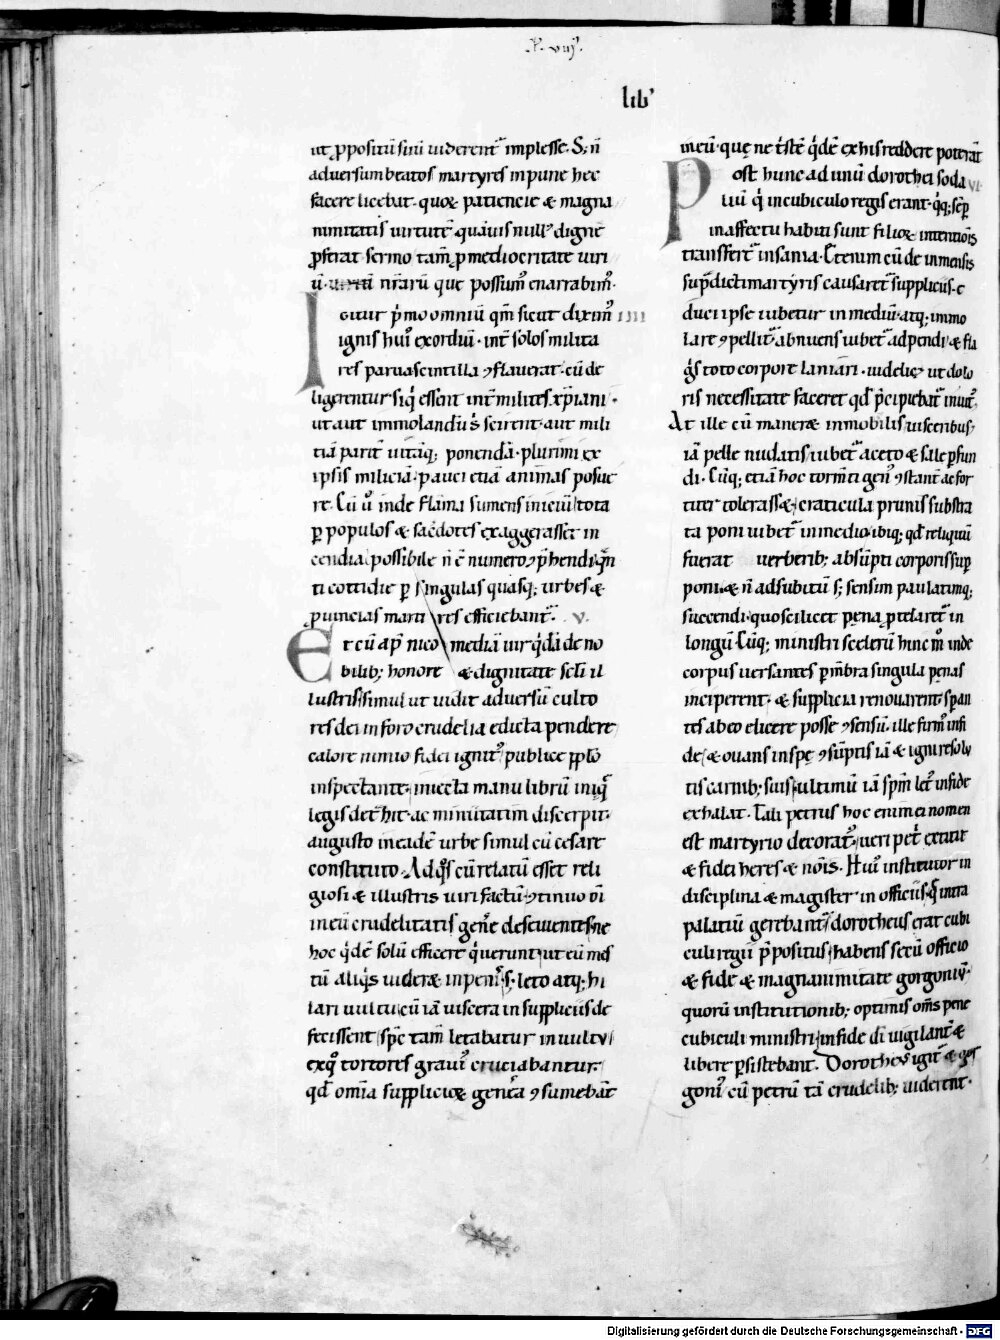 P. viij.
lib'
ut p̱positũ suũ uiderent̃ implesse. S; ñ
adversum beatos martyres inpune hec
facere licebat. quoꝝ patiencie & magna
nimitatis uirtutẽ quãuis null' digne
p̱ferat sermo tam̃ p̱ mediocritate uiri
ũ nr̃arũ que possum' enarrabim'.
IGitur p̓mo omniũ qm̃ sicut dixim' IIII
ignis hui' exordiũ. int̃ solos milita
res parua scintilla ꝯflauerat. cũ de
ligerentur siq̓ essent int̃ milites xp̃iani.
ut aut immolandũ s̓ scirent. aut mili
tiã parit̃ uitãq; ponendã. plurimi ex
ipsis miliciã. pauci etiã animas posue
re. Cũ u̓ inde flãma sumens iniciũ tota
ꝑ populos & sac̃dotes exaggerasset in
cendia possibile ñ ẽ numero ꝯp̃hendi q̃n
ti cottidie ꝑ singulas quasq; urbes &
p̱uincias martires efficiebant̃. v.
Et cũ ap̃ nicomediã uir q̓dã de no
bilib; honore & dignitate sc̃li il
lustris simul ut uidit adversũ culto
res dei in foro crudelia edicta pendere
calore nimio fidei ignit' publice pp̱lo
inspectante. iniecta manu librũ iniq̃
legis det̃hit. ac minutatim discerpit.
augusto in eadẽ urbe simul cũ cesare
constituto. Ad q̓s cũ relatũ esset reli
giosi & illustris uiri factũ ꝯtinuo oĩ
in eũ crudelitatis gen̾e deseuientes ne
hoc q̓dẽ solũ efficere q̓uerunt ut eũ mes
tũ aliq̓s uideræ in penis. s; leto atq; hi
lari uultu cũ iã uiscera in suppliciis de
fecissent spc̃ tam̃ letabatur in uultu
ex q̊ tortores graui' cruciabantur.
qd̃ om̃ia suppliciọꝝ gen̾a ꝯsumebãt
in eũ. quę ne t̓stẽ q̓dẽ ex his reddere poterãt
Post hunc ad unũ dorothei soda VI
liũ q̓ in cubiculo regis erant. q̓q; sẽꝑ
in affectu habiti sunt filioꝝ intentiõis
transfert̃ insania. Etenim cũ de inmensis
sup̃dicti martyris causaret̃ suppliciis. e
duci ipse iubetur in mediũ. atq; immo
lare ꝯpellit̃. abnuens iubet̃ adpendi & fla
g̓s toto corpore laniari. uidelic& ut dolo
ris necessitate faceret qd̃ p̃cipiebat̃ inuit'.
At ille cũ maneræ inmobilis uisceribus,
iã pelle nudatis iubet̃ aceto & sale ꝑfun
di. Cũq; etiã hoc torm̃ti gen' ꝯstant̃ ac for
titer tolerass& craticula prunis substra
ta poni iubet̃ in medio ibiq; qd̃ reliquiũ
fuerat uerberib; absũpti corporis supꝑ
poni. & ñ ad subitũ s; sensim paulatimq;
succendi. quo scilicet pęna p̱telaret̃ in
longũ. Cũq; ministri scelerũ hinc m̊ inde
corpus uersantes ꝑ mẽbra singula pęnas
inciperent. & supplicia renouarent. spãn
tes ab eo elicere posse ꝯsensũ. ille firm' infi
de & ouans in spę ꝯsũptis iã & igni resolu
tis carnib; suis ultimũ iã sp̃m let' in fide
exhalat. Tali petrus hoc enim ei nomen
est martyrio decorat' ueri pet̓ extitit
& fidei heres & nõis. Hui' institutor in
disciplina & magister in officiis. q̃ intra
palatiũ gerebant̃ dorotheus erat cubi
culi regii p̃positus. habens secũ officio
& fide & magnanimitate gorgoniũ.
quorũ institutionib; optimis om̃s pene
cubiculi ministri in fide dĩ uigilant̃ &
libere ꝑsistebant. Dorotheus igit̃ & gor
goni' cũ petrũ tã crudelib; uiderent.
Digitalisierung gefördert durch die Deutsche Forschungsgemeinschaft - DFG